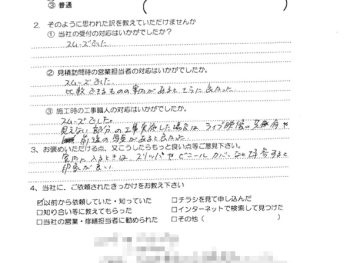 ③ 普通 (
2. そのように思われた訳を教えていただけませんか
① 当社の受付の対応はいかがでしたか?
スムーズでした
② 見積訪問時の営業担当者の対応はいかがでしたか?
スムーズでした
比較できるものの事例があるとさらに良かった
③ 施工時の工事職人の対応はいかがでしたか?
スムーズでした。
見えない部分の工事をした場合は ライブ映像の
前後の写真があると良かった
3、お褒めいただける点、又こうしたらもっと良い点等ご意見下さい。
室内に入るときは スリッパや ビニール カバー
が良い
4、当社に、ご依頼されたきっかけをお教え下さい
☑以前から依頼していた・知っていた □チラシを見て申し込んだ
□知り合い等に教えてもらった □インターネットで検索して見つけた
□当社の営業・修繕担当者に勧められた □その他(